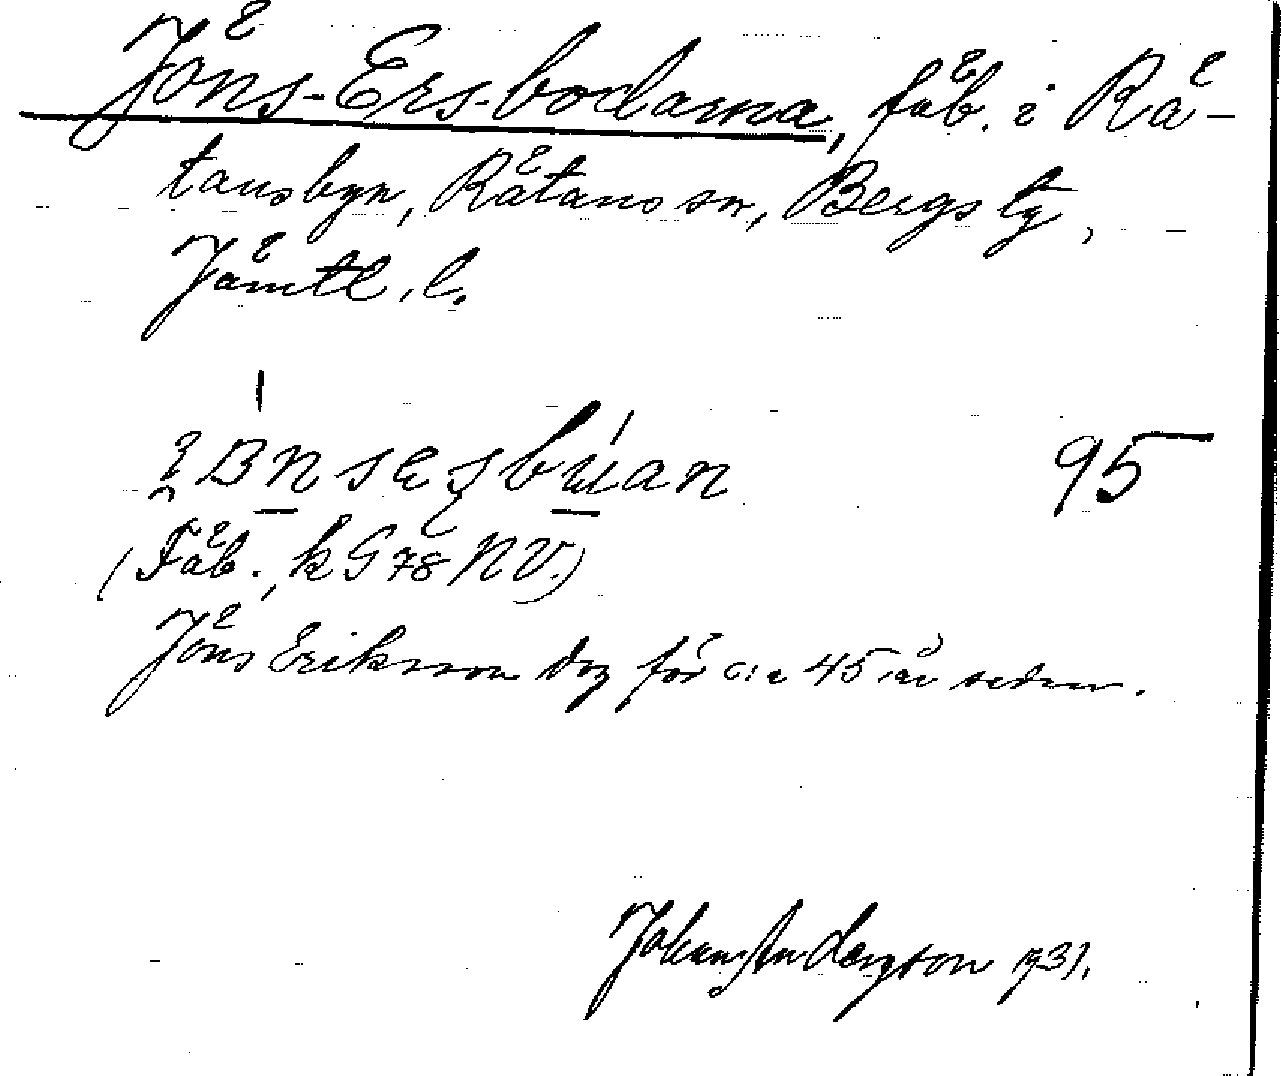 Jöns-Ers-bodarna, fäb. i Rä-
tansbyn, Rätans sn, Bergs tg,
Jämtl. l.
95
(Fäb., k G 78 NV.)
Jöns Eriksson dog för c:a 45 år sedan.
Johannes Andersson 1931.